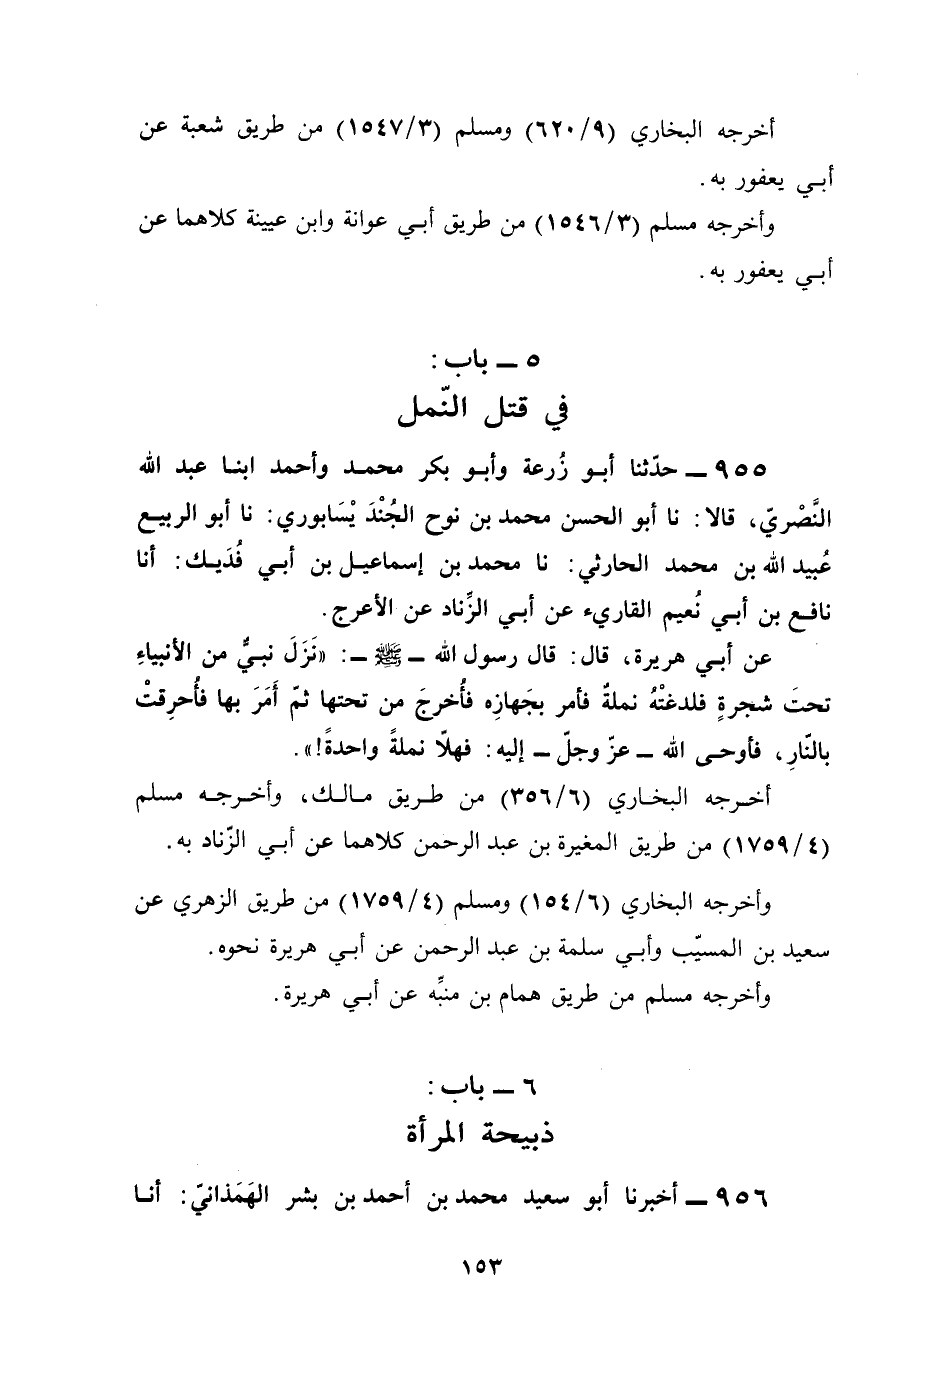 أخرجه البخاري (٩/ ٦٢٠) ومسلم (٣/ ١٥٤٧) من طريق شعبة عن
أبي يعفور به.
وأخرجه مسلم (٣/ ١٥٤٦) من طريق أبي عوانة وابن عيينة كلاهما عن
أبي يعفور به.
٥ ــ باب:
في قتل النّمل
٩٥٥ ــ حدّثنا أبو زُرعة وأبو بكر محمد وأحمد ابنا عبد الله
النَّصْريّ، قالا: نا أبو الحسن محمد بن نوح الجُنْدَ يْسَابوري: نا أبو الربيع
عُبيد الله بن محمد الحارثي: نا محمد بن إسماعيل بن أبي فُدَيك: أنا
نافع بن أبي نُعيم القاريء عن أبي الزِّناد عن الأعرج.
عن أبي هريرة، قال: قال رسول الله ــ ﷺ ــ: «نَزَلَ نبيٌّ من الأنبياءِ
تحتَ شجرةٍ فلدغتْهُ نملةٌ فأمر بجَهازِه فأُخرجَ من تحتها ثمّ أَمَرَ بها فأُحرقتْ
بالنّارِ، فأوحى الله ــ عزّ وجلّ ــ إليه: فهلّا نملةً واحدةً!».
أخرجه البخاري (٦/ ٣٥٦) من طريق مالك، وأخرجه مسلم
(٤/ ١٧٥٩) من طريق المغيرة بن عبد الرحمن كلاهما عن أبي الزّناد به.
وأخرجه البخاري (٦/ ١٥٤) ومسلم (٤/ ١٧٥٩) من طريق الزهري عن
سعيد بن المسيّب وأبي سلمة بن عبد الرحمن عن أبي هريرة نحوه.
وأخرجه مسلم من طريق همام بن منبِّه عن أبي هريرة.
٦ ــ باب:
ذبيحة المرأة
٩٥٦ ــ أخبرنا أبو سعيد محمد بن أحمد بن بشر الهَمَذانيّ: أنا
١٥٣